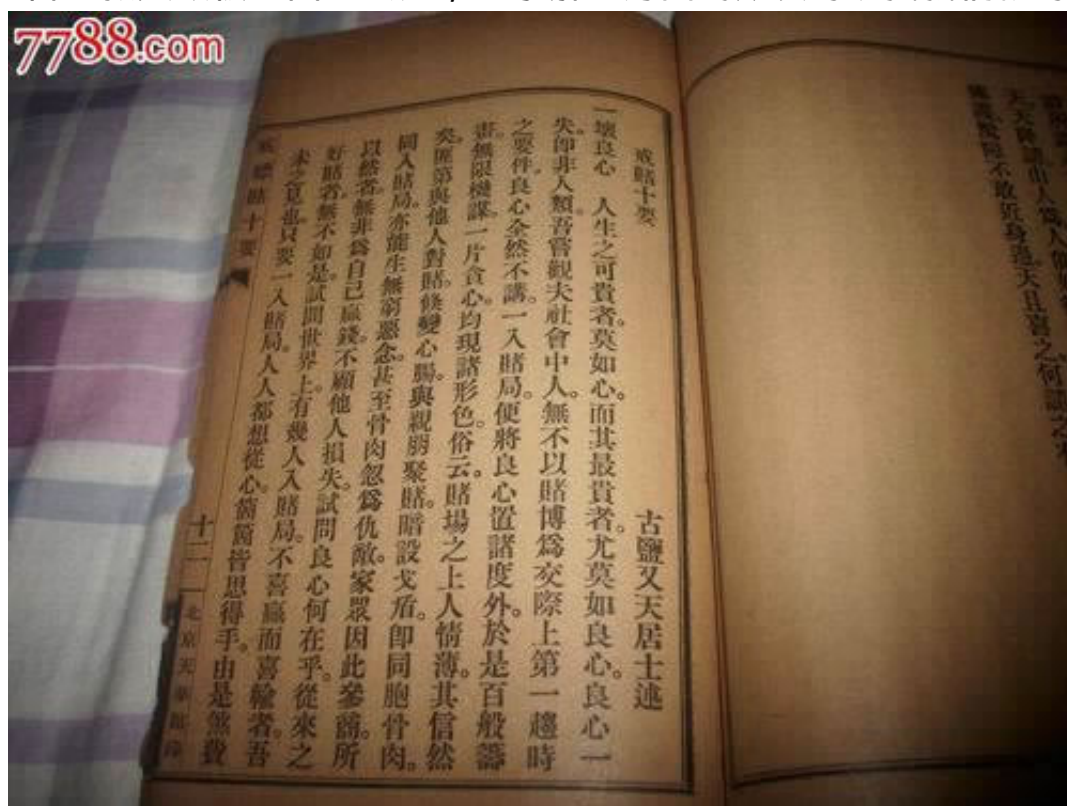 7788.com
天夫降諸由人爲人
不敢近身過天且喜之何
戒賭十要
古鹽又天居士述
一壞良心　人生之可貴者。莫如心。而其最貴者。尤莫如良心。良心一
失。卽非人類。吾嘗觀夫社會中人。無不以賭博爲交際上第一趨時
之要件。良心全然不講。一入賭局。便將良心置諸度外。於是百般籌
畫。無限機謀。一片貪心。均現諸形色。俗云。賭場之上人情薄。其信然
矣。匪第與他人對賭。倏變心腸。與親朋聚賭。暗設戈盾。卽同胞骨肉。
同入賭局。亦能生無窮惡念。甚至骨肉忽爲仇敵。家眾因此參商。所
以然者。無非爲自己贏錢。不顧他人損失。試問良心何在乎。從來之
好賭者。無不如是。試問世界上有幾人入賭局。不喜贏而喜輸者。吾
未之見也。只要一入賭局。人人都想從心。箇箇皆思得手。由是煞費
戒嫖賭十要
十二
北京天華館